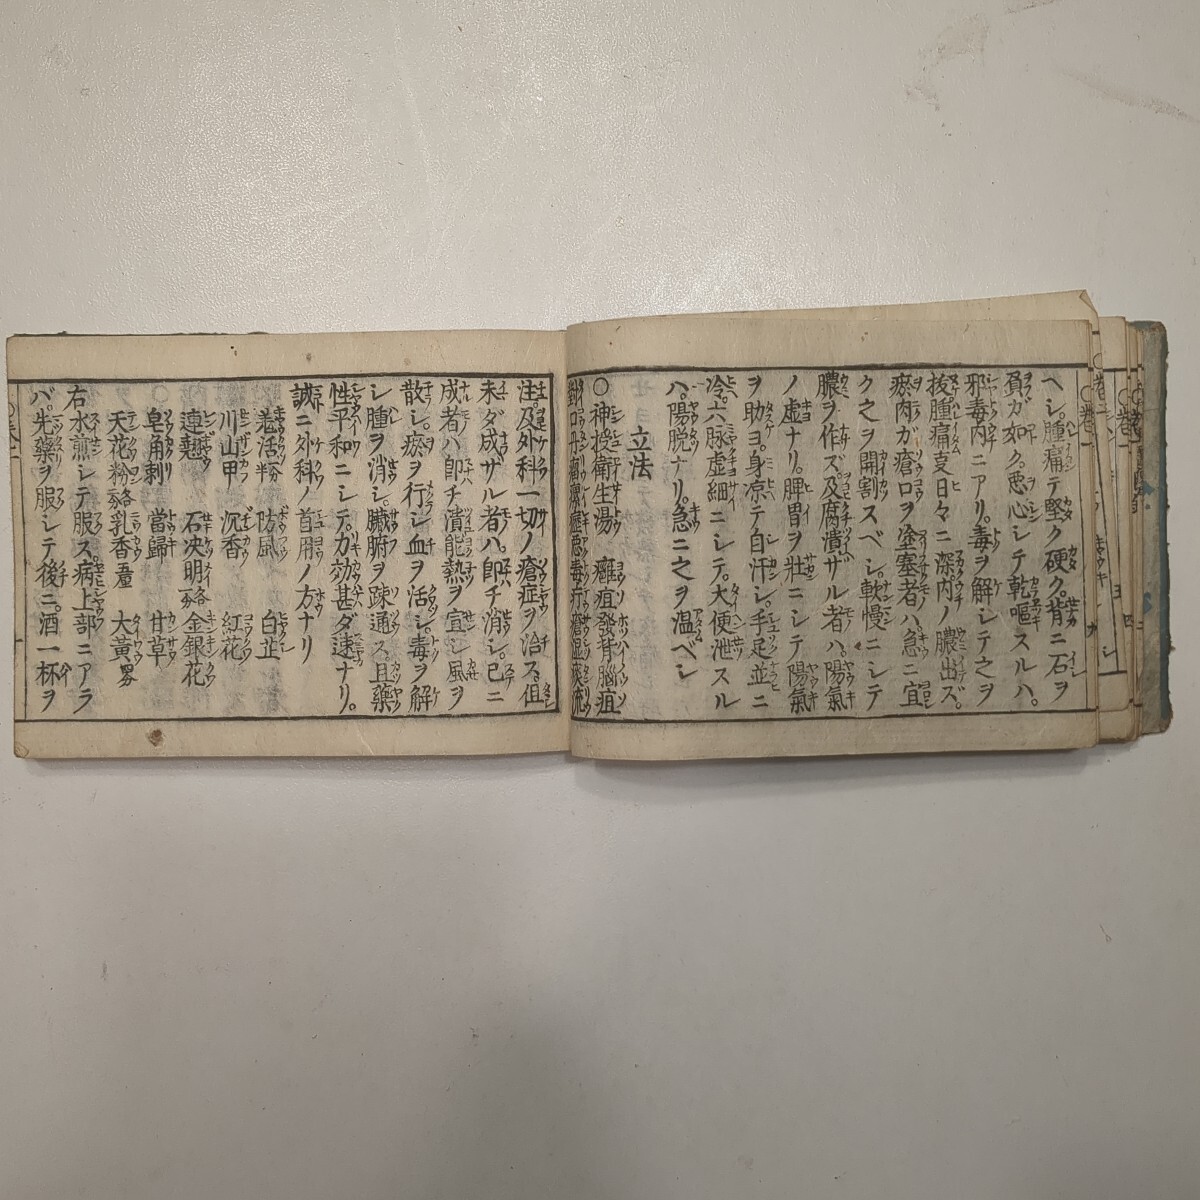 ヘシ。腫痛テ堅ク硬ク。背ニ石ヲ
負カ如ク。悪心シテ乾嘔スルハ。
邪毒内ニアリ。毒ヲ解シテ之ヲ
抜腫痛夏日々ニ深内ノ膿出ズ。
瘀肉ガ瘡口ヲ塗塞者ハ急ニ宜
ク之ヲ開割スベシ。軟慢ニシテ
膿ヲ作ズ及腐潰ザル者ハ。陽氣
ノ虚ナリ。脾胃ヲ壯ニシテ陽氣
ヲ助ヨ。身凉テ自汗シ。手足並ニ
冷。六脉虚細ニシテ。大便泄スル
ハ。陽脱ナリ。急ニ之ヲ温ベシ
立法
○神授衛生湯 癰疽發背腦疽
對口丹瘤瘰癧惡毒疔瘡湿痰流
注及外科一切ノ瘡症ヲ治ス。但
未ダ成ザル者ハ。即チ消シ。已ニ
成者ハ即チ潰。能熱ヲ宣シ風ヲ
散シ。瘀ヲ行シ血ヲ活シ。毒ヲ解
シ腫ヲ消シ。臓腑ヲ疎通ス。且藥
性平和ニシテ。力効甚ダ速ナリ。
誠ニ外科ノ首用ノ方ナリ
羗活 防風 白芷
川山甲 沉香 紅花
連翹 石决明各 金銀花
皂角刺 當歸 甘草
天花粉各 乳香 大黃
右水煎シテ服ス。病上部ニアラ
バ。先藥ヲ服シテ後ニ。酒一杯ヲ